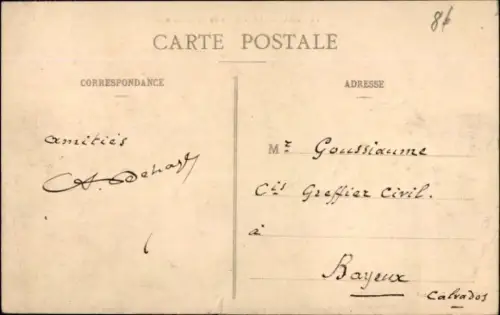 86
CARTE POSTALE
CORRESPONDANCE
ADRESSE
amitiés
Mr Goussiaume
Cis Greffier Civil.
à
Bayeux
Calvados